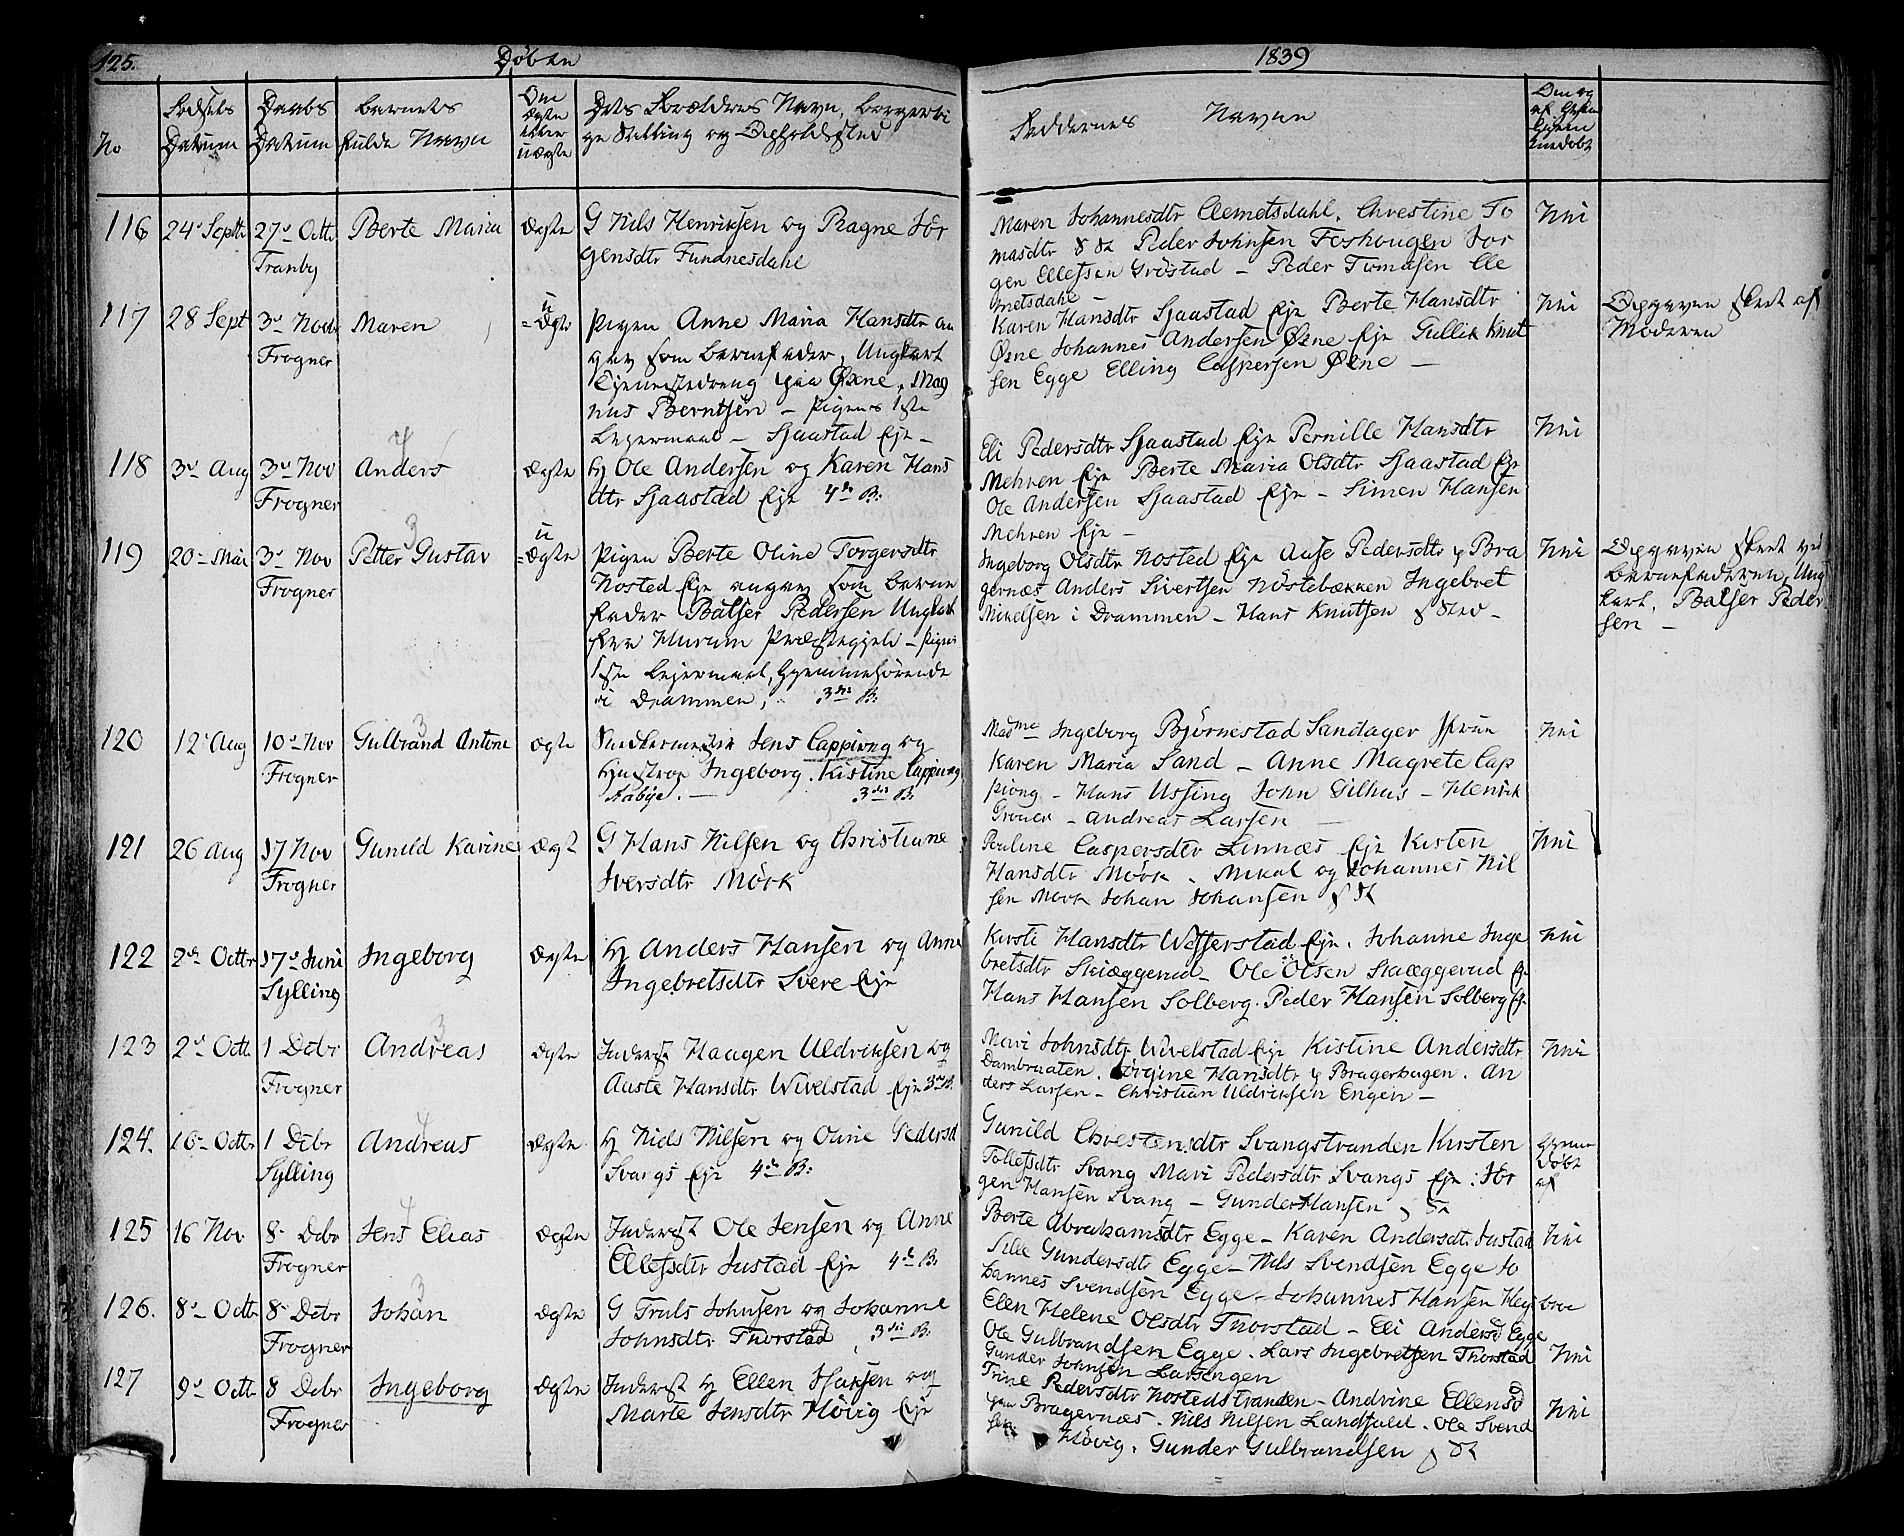 125. Döbte 1839
No
Fødsels Datum
Daabs Datum
Barnets fulde Navn
Om Ægte eller uægte
Dets Forældres Navn, borgerli
ge Stilling og Opholdssted
Faddernes Navne
116 24de Septb 27de Octbr Tranby Berte Maria Ægte
G Niels Henriksen og Ragne Jör
gensdtr Fundnesdahl
Maren Johannesdtr Clemetsdahl. Chrestine To
masdtr Peder Johnsen Foshougen Jör
gen Ellefsen Gröstad - Peder Tomasen Cle
metsdahl - Nei
117 28 Sept 3de Novbr Frogner Maren u=Ægte
Pigen Anne Maria Hansdtr an
gav som Barnefader, Ungkarl
Tjenestedreng paa Öxne, Mag
nus Berntsen - Pigens 1ste
Leiermaal - Sjaastad Eje -
Karen Hansdtr Sjaastad Eje Berte Hansdtr
Öxne Johannes Andersen Öxne Eje Gullik Knut
sen Egge Elling Caspersen Öxne -
Nei
Opgaven skeet af
Moderen
118 3de Aug 3de Nov Frogner Anders 4 Ægte
H Ole Andersen og Karen Hans
dtr Sjaastad Eje 4de B:
Eli Pedersdtr Sjaastad Eje Pernille Hansdtr
Mehren Eje Berte Maria Olsdtr Sjaastad Eje
Ole Andersen Sjaastad Eje - Simen Hansen
Mehren Eje -
Nei
119 20de Mai 3de Nov Frogner Petter Gustav 3 u=Ægte
Pigen Berte Oline Torgersdtr
Nosted Eje angav som Barne
fader Balser Pedersen Ungkarl
fra Hurum Præstegjeld - Pigens
1ste Leiermaal, hjemmehörende
i Drammen, 3die B:
Ingeborg Olsdtr Nosted Eje Aase Pedersdtr p Bra
gernæs Anders Sivertsen Nöstebækken Ingebret
Mikelsen i Drammen - Hans Knutsen
Nei
Opgaven skeet ved
Barnefaderen, Ung
karl. Balser Peder
sen -
120 12te Aug 10de Nov Frogner Gulbrand Antone 3 ægte
Snedkermester Jens Cappiong og
Hustrue Ingeborg. Kistine Cappiong
Aabye. - 3die B:
Madme Ingeborg Björnestad Sandager Jfrue
Karen Maria Sand - Anne Magrete Cap
piong - Hans Ussing John Gilhus - Henrik
- Andreas Larsen -
Nei
121 26 Aug 17 Nov Frogner Gunild Karine Ægte
G Hans Nilsen og Christiane
Iversdtr Mörk
Pauline Caspersdtr Linnæs Eje Kirsten
Hansdtr Mörk. Mikal og Johannes Nil
sen Mörk Johan Johansen
Nei
122 2den Octbr 17de Juni Sylling Ingeborg Ægte
H Anders Hansen og Anne
Ingebretsdtr Svere Eje
Kirsti Hansdtr Eje. Johanne Inge
bretsdtr Skiæggerud - Ole Olsen Skiæggerud E
Hans Hansen Solberg. Peder Hansen Solberg E
Nei
123 2den Octb 1 Dcbr Frogner Andreas 3 Ægte
Inderst Haagen Uldriksen og
Aaste Hansdtr Wivelstad Eje 3die B
Mari Johnsdtr Wivelstad Eje Kistine Andersdtr
Dambraaten. Jörgine Hansdtr p Bragerhagen. An
ders Larsen - Christian Uldriksen Engen -
Nei
124. 16de Octbr 1 Dcbr Sylling Andreas 4 Ægte
H Niels Nilsen og Oline Pedersd
Svangs Eje 4de B:
Gunild Chrestensdtr Svangstranden Kirsten
Tollefsdtr Svang Mari Pedersdtr Svangs Eje: Jör
gen Hansen Svang - Gunder Hansen
Hjemme
Döbt
af
125 16 Nov 8de Dcbr Frogner Jens Elias 4 Ægte
Inderst Ole Jensen og Anne
Ellefsdtr Justad Eje 4de B:
Berte Abrahamsdtr Egge - Karen Andersdtr Justad
Sille Gundersdtr Egge - Nils Svendsen Egge Jo
hannes Svendsen Egge - Johannes Hansen
Nei
126. 8de Octbr 8de Dcbr Frogner Johan 3 Ægte
G Truls Johnsen og Johanne
Johnsdtr Thorstad, 3die B:
Elen Helene Olsdtr Thorstad - Eli Andersd Egge
Ole Gulbrandsen Egge. Lars Ingebretsen Thorstad
Gunder Johnsen Larsengen
Nei
127 9de Octb 8 Dcbr Frogner Ingeborg Ægte
Inderst H Ellen Isaksen og
Marte Jensdtr Hövig Eje
Trine Pedersdtr Nostedstranden - Andrine Ellensd
Bragernæs. Nils Nilsen Landfald. Ole Svend
sen Hövig. Gunder Gulbrandsen
Nei